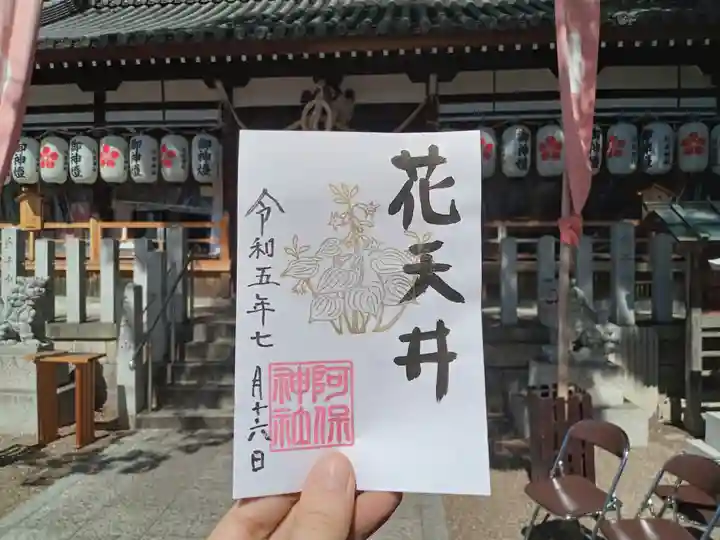 花天井
令和五年七月十六日
阿保
神社
御神燈
御神燈
御神燈
御神燈